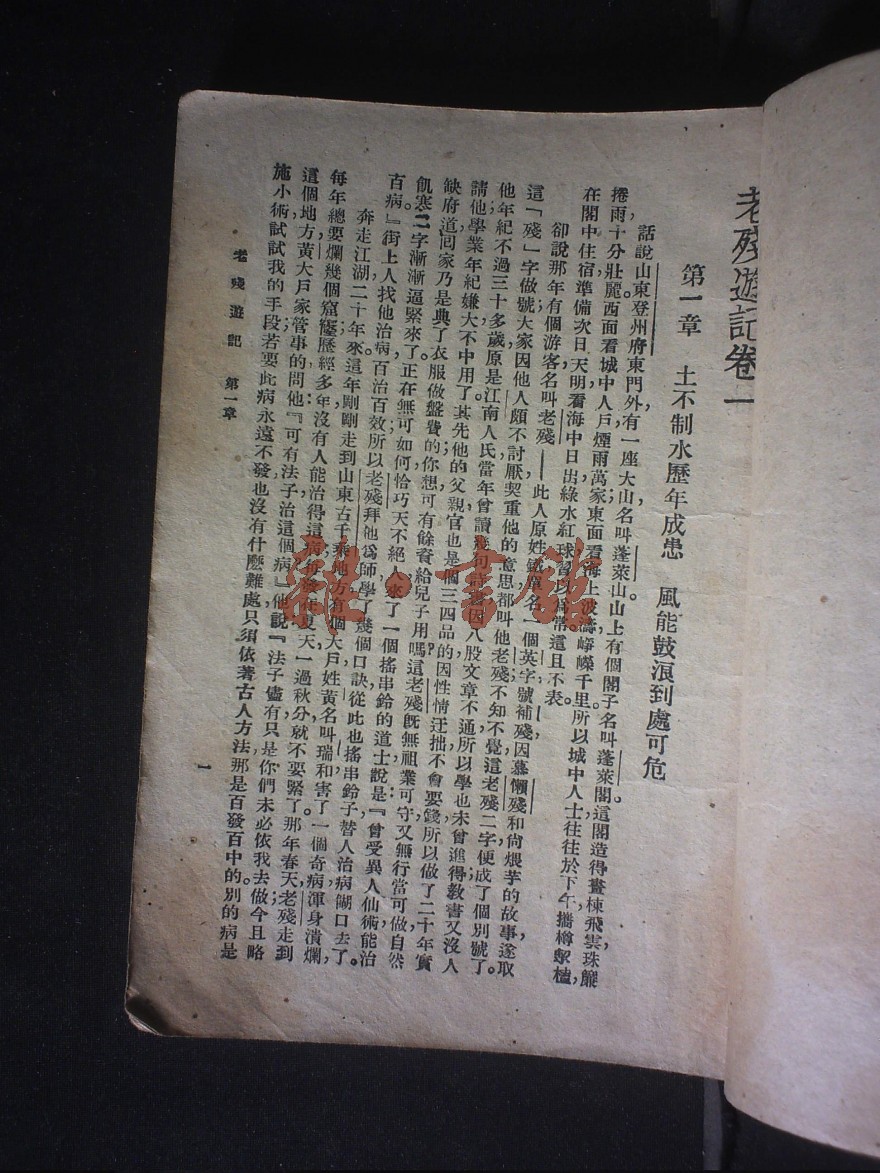 老殘遊記卷一
第一章 土不制水歷年成患 風能鼓浪到處可危
話說山東登州府東門外有一座大山，名叫蓬萊山。山上有個閣子，名叫蓬萊閣。這閣造得畫棟飛雲，珠簾
捲雨，十分壯麗。西面看城中人戶，煙雨萬家；東面看海上波濤，崢嶸千里。所以城中人士往往於下午攜樽挈榼，
在閣中住宿，準備次日天明看海中日出，綠水紅球，習以爲常。這且不表。
卻說那年有個游客，名叫老殘——此人原姓鐵，單名一個英字，號補殘；因慕懶殘和尚煨芋的故事，遂取
這「殘」字做號。大家因他人頗不討厭，契重他的意思，都叫他老殘。不知不覺，這老殘二字便成了個別號了。
他年紀不過三十多歲，原是江南人氏。當年曾讀幾句詩書，因八股文章不通，所以學也未曾進得，教書又沒人
請他，學業年紀嫌大，不中用了。其先他的父親官也是個三四品的，因性情迂拙，不會要錢，所以做了二十年實
缺府道，回家乃是典了衣服做盤費的。你想可有餘資給兒子用嗎？這老殘既無祖業可守，又無行當可做，自然
飢寒二字漸漸逼緊來了。正在無可如何，恰巧天不絕人，來了一個搖串鈴的道士，說是『曾受異人仙術，能治
百病』，街上人找他治病，百治百效。所以老殘拜他爲師，學了幾個口訣。從此也搖串鈴子，替人治病餬口去了。
奔走江湖二十年來，這年剛剛走到山東古千乘地方，有個大戶，姓黃，名叫瑞和，害了一個奇病，渾身潰爛，
每年總要爛幾個窟窿。歷經多年，沒有人能治得這病，每發在夏天，一過秋分就不要緊了。那年春天老殘走到
這個地方，黃大戶家管事的問他『可有法子治這個病』，他說『法子儘有，只是你們未必依我去做。今且略
施小術，試試我的手段。若要此病永遠不發，也沒有什麽難處，只須依著古人方法，那是百發百中的。別的病是
老殘遊記 第一章
一
雜·書館